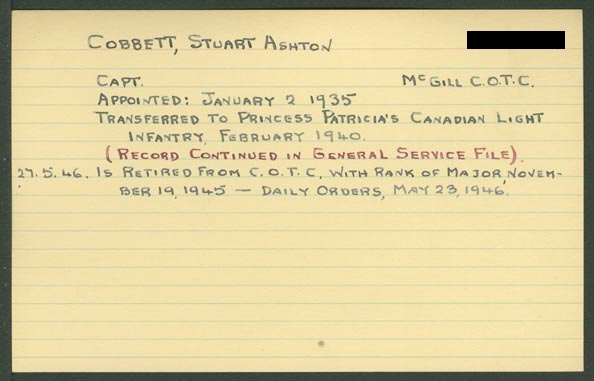 COBBETT, STUART ASHTON
CAPT. MCGILL C.O.T.C.
APPOINTED: JANUARY 2 1935
TRANSFERRED TO PRINCESS PATRICIA'S CANADIAN LIGHT
INFANTRY, FEBRUARY 1940.
(RECORD CONTINUED IN GENERAL SERVICE FILE).
27.5.46. IS RETIRED FROM C.O.T.C. WITH RANK OF MAJOR, NOVEM-
BER 19, 1945 — DAILY ORDERS, MAY 23, 1946.